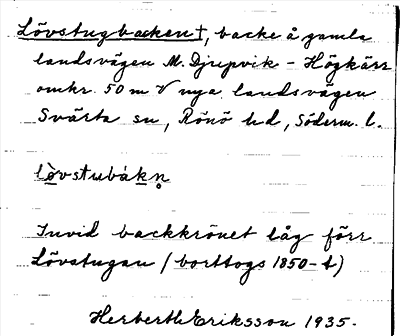 Lövstugbacken†, backe å gamla
landsvägen M. Djupvik - Högkärr
omkr. 50 m V nya landsvägen
Svärta sn, Rönö hd, Söderm. l.
lövstubàkn̥
Invid backkrönet låg förr
Lövstugan (borttogs 1850-t)
Herberth Eriksson 1935.